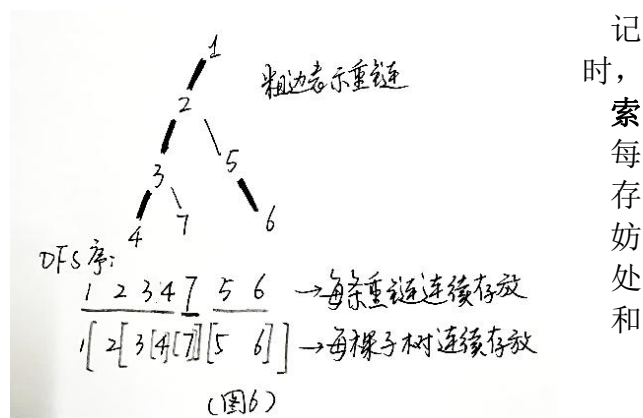 1
粗边表示重链
2
3
5
4
7
6
DFS序:
1 2 3 4 7 5 6 →每条重链连续存放
1[2[3[4][7]][5 6]]→每棵子树连续存放
(图6)
记
时，
索
每
存
妨
处
和